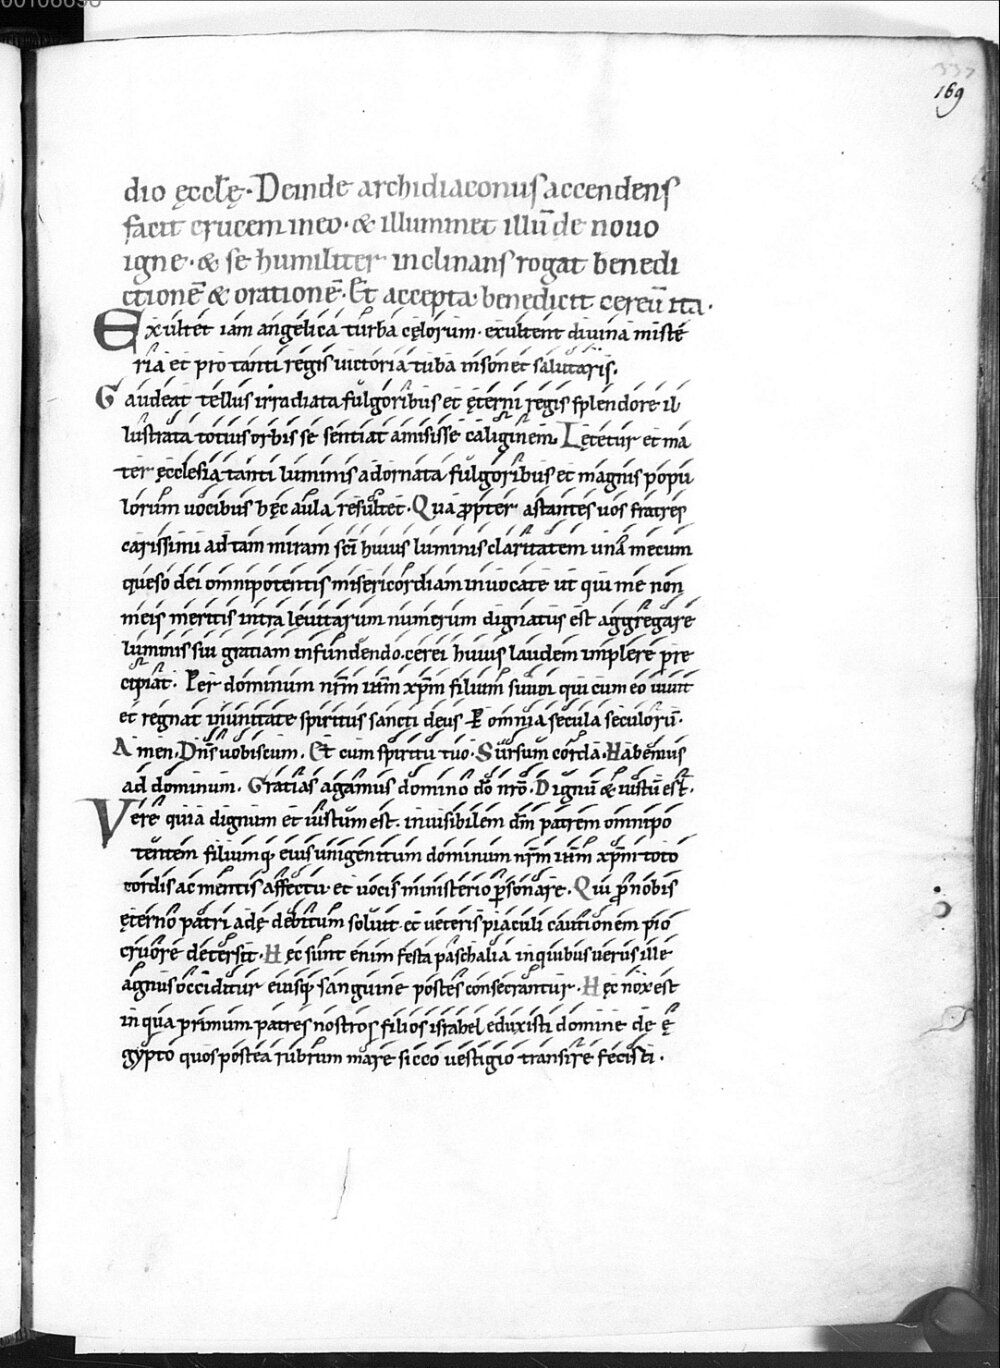 00106698
337
169
dio ęcclę. Deinde archidiaconus accendens
facit crucem in eo. & illuminet illū de nouo
igne. & se humiliter inclinans rogat benedi
ctionē & orationē. Et accepta benedicit cereū ita.
Exultet iam angelica turba cęlorum. exultent diuina miste
ria et pro tanti regis uictoria tuba insonet salutaris.
Gaudeat tellus irradiata fulgoribus et ęterni regis splendore il
lustrata totius orbis se sentiat amisisse caliginem. Lętetur et ma
ter ęcclesia tanti luminis adornata fulgoribus et magnis popu
lorum uocibus hęc aula resultet. Qua ꝓpter astantes uos fratres
carissimi ad tam miram scī huius luminis claritatem unā mecum
queso dei omnipotentis misericordiam inuocate ut qui me non
meis meritis intra leuitarum numerum dignatus est aggregare
luminis sui gratiam infundendo. cerei huius laudem implere pre
cipiat. Per dominum nr̄m ih̄m xp̄m filium suum qui cum eo uiuit
et regnat in unitate spiritus sancti deus ꝑ omnia secula seculorū.
Amen. Dn̄s uobiscum. Et cum spiritu tuo. Sursum corda. Habemus
ad dominum. Gratias agamus domino dō nrō. Dignū & iustū est.
Vere quia dignum et iustum est. inuisibilem dm̄ patrem omnipo
tentem filiumq; eius unigenitum dominum nr̄m ih̄m xp̄m toto
cordis ac mentis affectu et uocis ministerio ꝑsonare. Qui ꝓ nobis
ęterno patri adę debitum soluit. et ueteris piaculi cautionem pio
cruore detersit. Hęc sunt enim festa paschalia in quibus uerus ille
agnus occiditur eiusq; sanguine postes consecrantur. Hęc nox est
in qua primum patres nostros filios israhel eduxisti domine de ę
gypto quos postea rubrum mare sicco uestigio transire fecisti.